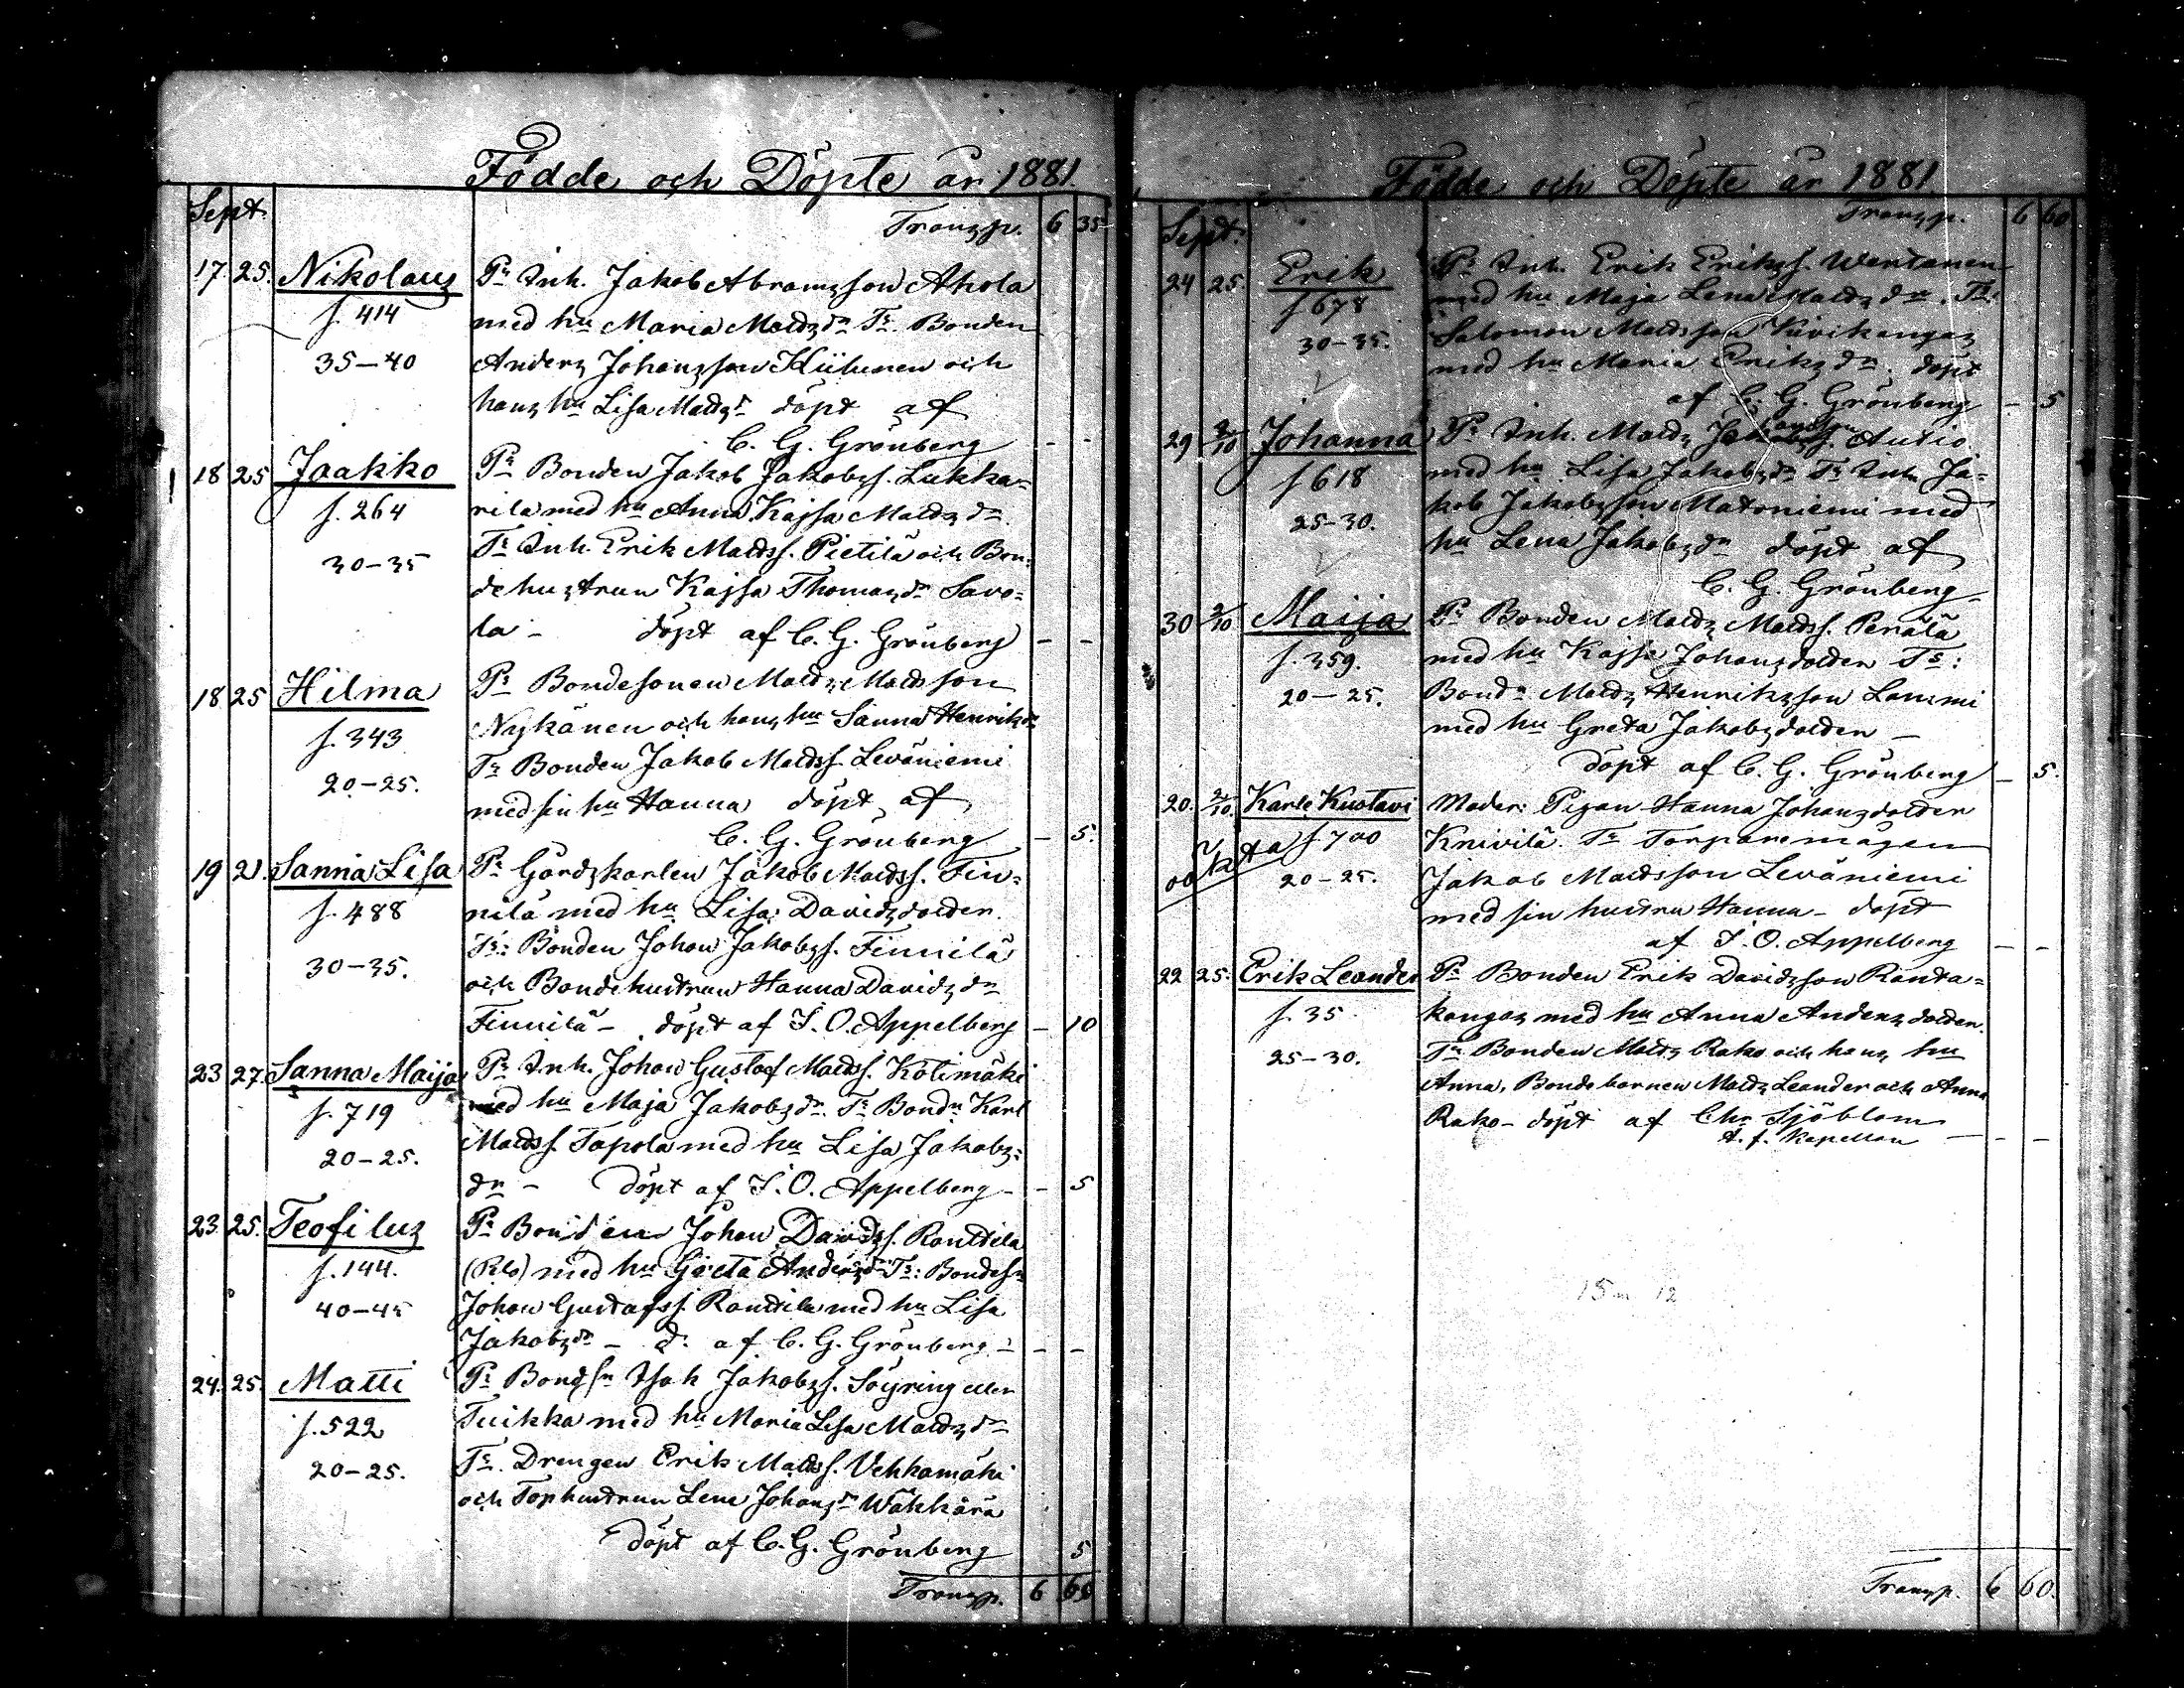 Födde och Döpte år 1881.
Sept.
Transp. 6 35
17. 25. Nikolaus Pr Inh. Jakob Abramsson Ahola
f. 414 med hu Maria Matsdr Tr. Bonden
35-40 Anders Johansson Kiilunen och
hans hu Lisa Matsdr döpt af
C. G. Grönberg - -
18 25 Jaakko Pr Bonden Jakob Jakobss. Lukka=
f. 264 rila med hu Anna Kajsa Matsdr.
30-35 Tr Inh. Erik Matss. Pietilä och Bon=
dehustrun Kajsa Thomasdr Savo=
la - döpt af C. G. Grönberg - -
18 25 Hilma Pr Bondesonen Mats Matsson
f. 343 Nykänen och hans hu Sanna Henriksdr
20-25. Tr Bonden Jakob Matss. Leväniemi
med sin hu Hanna döpt af
C. G. Grönberg - 5.
19 21. Sanna Lisa Pr Gårdskarlen Jakob Matss. Fin=
f. 488 nilä med hu Lisa Davidsdotter.
30-35. Tr: Bonden Johan Jakobss. Finnilä
och Bondehustrun Hanna Davidsdr
Finnilä - döpt af I. O. Appelberg - 10
23 27. Sanna Maija Pr Inh. Johan Gustaf Matss. Kotimäki
f. 719 med hu Maja Jakobsdr. Tr Bondn Karl
20-25. Matss. Tapola med hu Lisa Jakobs=
dr - döpt af I. O. Appelberg - - 5
23. 25. Teofilus Pr Bonden Johan Davidss. Ranttila
f. 144. med hu Greta Andersdr Tr: Bondesn
40-45 Johan Gustafss. Ranttila med hu Lisa
Jakobsdr - d. af C. G. Grönberg - - -
24. 25. Matti Pr Bondsn Isak Jakobss. Söyring eller
f. 522 Tuikka med hu Maria Lisa Matsdr
20-25. Tr. Drengen Erik Matss. Vehkamäki
och Torphustrun Lena Johansdr Wäkkärä
döpt af C. G. Grönberg 5
Transp. 6 60
Födde och Döpte år 1881.
Sept. Transp. 6 60
24 25 Erik Pr Inh. Erik Erikss. Wertanen
f 678 med hu Maja Lena Matsdr. Tr:
30-35. Salomon Matsson Kivikangas
med hu Maria Eriksdr. döpt
af C. G. Grönberg - 5
29 2/10 Johanna Pr Inh. Mats Autio
f 618 med hu Lisa Jakobsdr Tr Inh. Ja=
25-30. kob Jakobsson Matoniemi med
hu Lena Jakobsdr döpt af
C. G. Grönberg -
30 2/10 Maija Pr Bonden Mats Matss. Perälä
f. 359. med hu Kajsa Johansdotter Tr:
20-25. Bondn Mats Henriksson Lammi
med hu Greta Jakobsdotter -
döpt af C. G. Grönberg - 5.
20. 2/10. Karle Kustavi Moder: Pigan Hanna Johansdotter
oäkta f 700 Knivilä. Tr Torparemågen
20-25. Jakob Matsson Leväniemi
med sin hustru Hanna - döpt
af I. O. Appelberg - -
22 25. Erik Leander Pr Bonden Erik Davidsson Ranta=
f. 35 kangas med hu Anna Andersdotter.
25-30. Tr Bonden Mats Rako och hans hu
Anna, Bondebarnen Mats Leander och Anna
Rako - döpt af Chr Sjöblom
t. f. Kapellan - - -
15 m 12
Transp. 6 60.